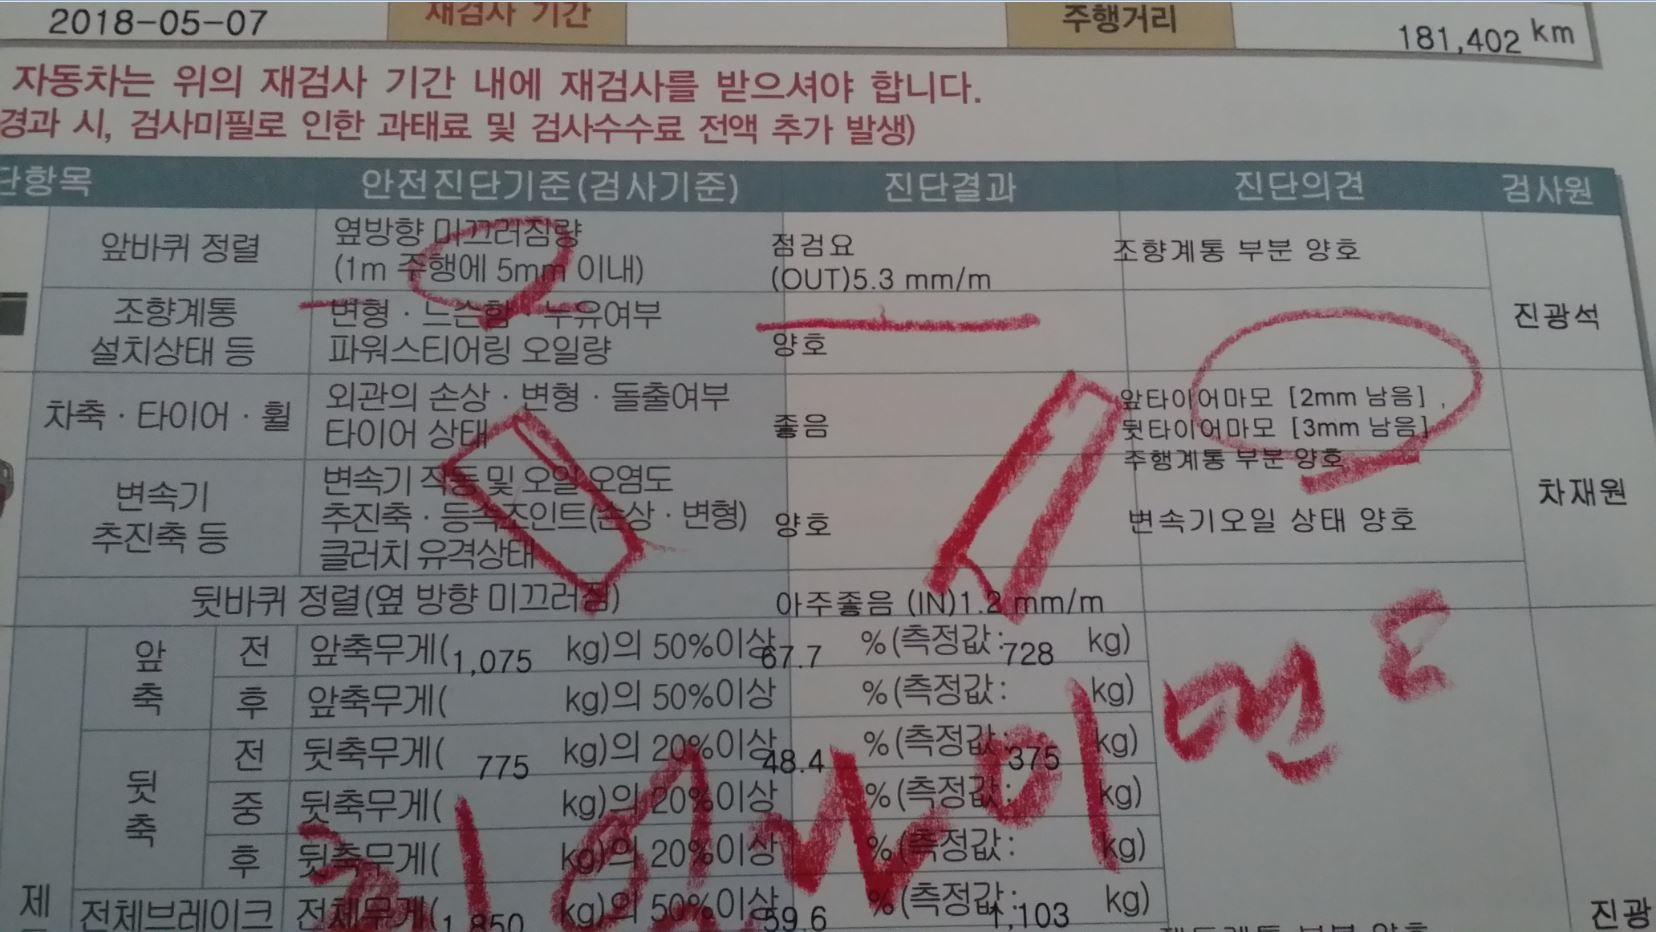 2018-05-07 재검사 기간 주행거리 181,402 km
자동차는 위의 재검사 기간 내에 재검사를 받으셔야 합니다.
경과 시, 검사미필로 인한 과태료 및 검사수수료 전액 추가 발생)
단항목 안전진단기준(검사기준) 진단결과 진단의견 검사원
앞바퀴 정렬
옆방향 미끄러짐량
(1m 주행에 5mm 이내)
점검요
(OUT)5.3 mm/m
조향계통 부분 양호
진광석
조향계통
설치상태 등
변형 · 느슨함 · 누유여부
파워스티어링 오일량
양호
차축 · 타이어 · 휠
외관의 손상 · 변형 · 돌출여부
타이어 상태
좋음
앞타이어마모 [2mm 남음] ,
뒷타이어마모 [3mm 남음]
주행계통 부분 양호
차재원
변속기
추진축 등
변속기 작동 및 오일 오염도
추진축 · 등속조인트(손상 · 변형)
클러치 유격상태
양호
변속기오일 상태 양호
뒷바퀴 정렬(옆 방향 미끄러짐) 아주좋음 (IN)1.2 mm/m
앞축
전 앞축무게(1,075 kg)의 50%이상 67.7 %(측정값:728 kg)
후 앞축무게( kg)의 50%이상 %(측정값: kg)
뒷축
전 뒷축무게( 775 kg)의 20%이상 48.4 %(측정값:375 kg)
중 뒷축무게( kg)의 20%이상 %(측정값: kg)
후 뒷축무게( kg)의 20%이상 %(측정값: kg)
제
전체브레이크 전체무게(1,850 kg)의 50%이상 59.6 %(측정값:1,103 kg)
진광